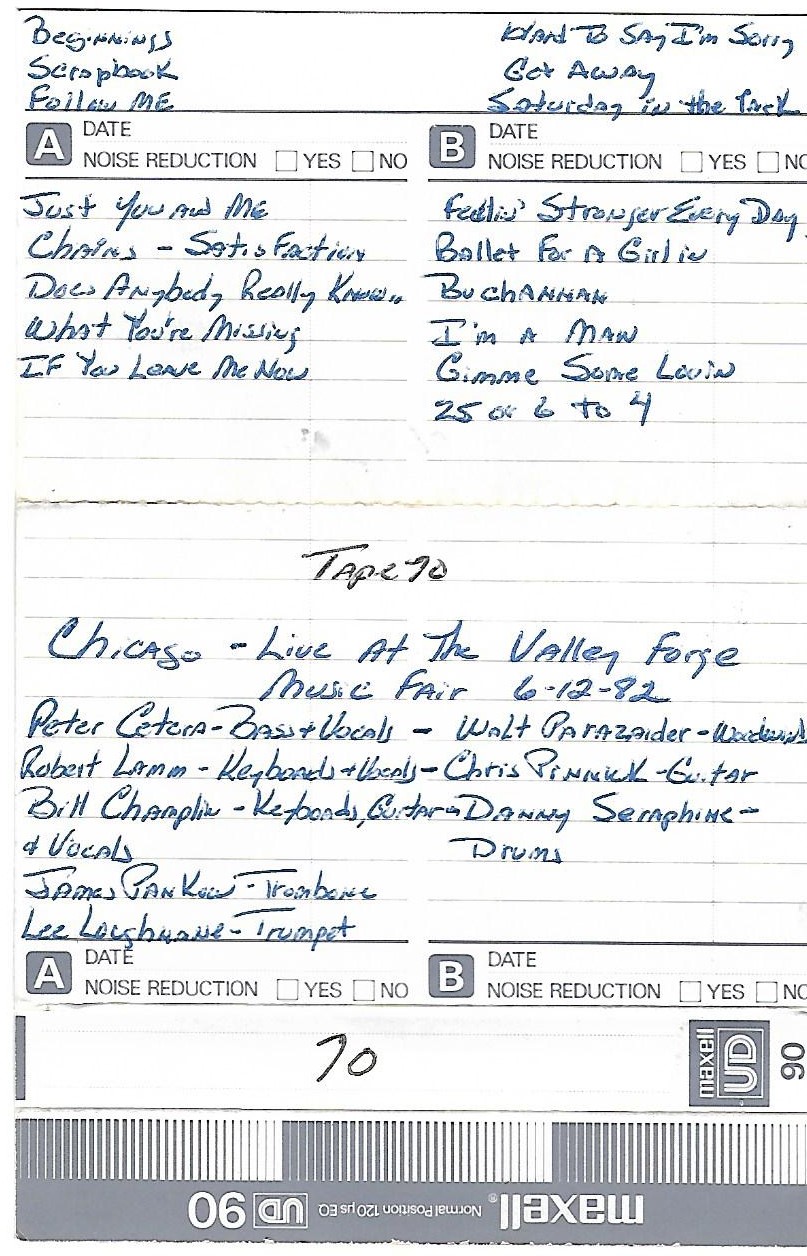 Beginnings
Scrapbook
Follow ME
Hard To Say I'm Sorry
Get Away
Saturday in the Park
A DATE
NOISE REDUCTION YES NO
B DATE
NOISE REDUCTION YES NO
Just You And Me
Chains - Satisfaction
Does Anybody Really Know..
What You're Missing
IF You Leave Me Now
Feelin' Stronger Every Day
Ballet For A Girl in
BuchANNAN
I'm A MAN
Gimme Some Lovin
25 or 6 to 4
Tape 70
Chicago - Live At The Valley Forge
Music Fair 6-12-82
Peter Cetera - Bass + Vocals - Walt Parazaider - Woodwinds
Robert Lamm - Keyboards + Vocals - Chris Pinnick - Guitar
Bill Champlin - Keyboards, Guitar - Danny Seraphine -
& Vocals
Drums
James Pankow - Trombone
Lee Loughnane - Trumpet
A DATE
NOISE REDUCTION YES NO
B DATE
NOISE REDUCTION YES NO
70
maxell UD 90
maxell® Normal Position 120 µs EQ UD 90